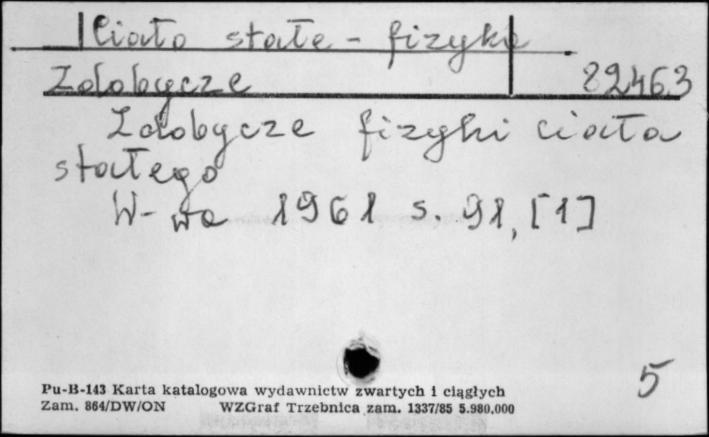 Ciało stałe - fizyka
Zdobycze 82463
Zdobycze fizyki ciała
stałego
W-wa 1961 s. 91, [1]
5
Pu-B-143 Karta katalogowa wydawnictw zwartych i ciągłych
Zam. 864/DW/ON WZGraf Trzebnica zam. 1337/85 5.980.000